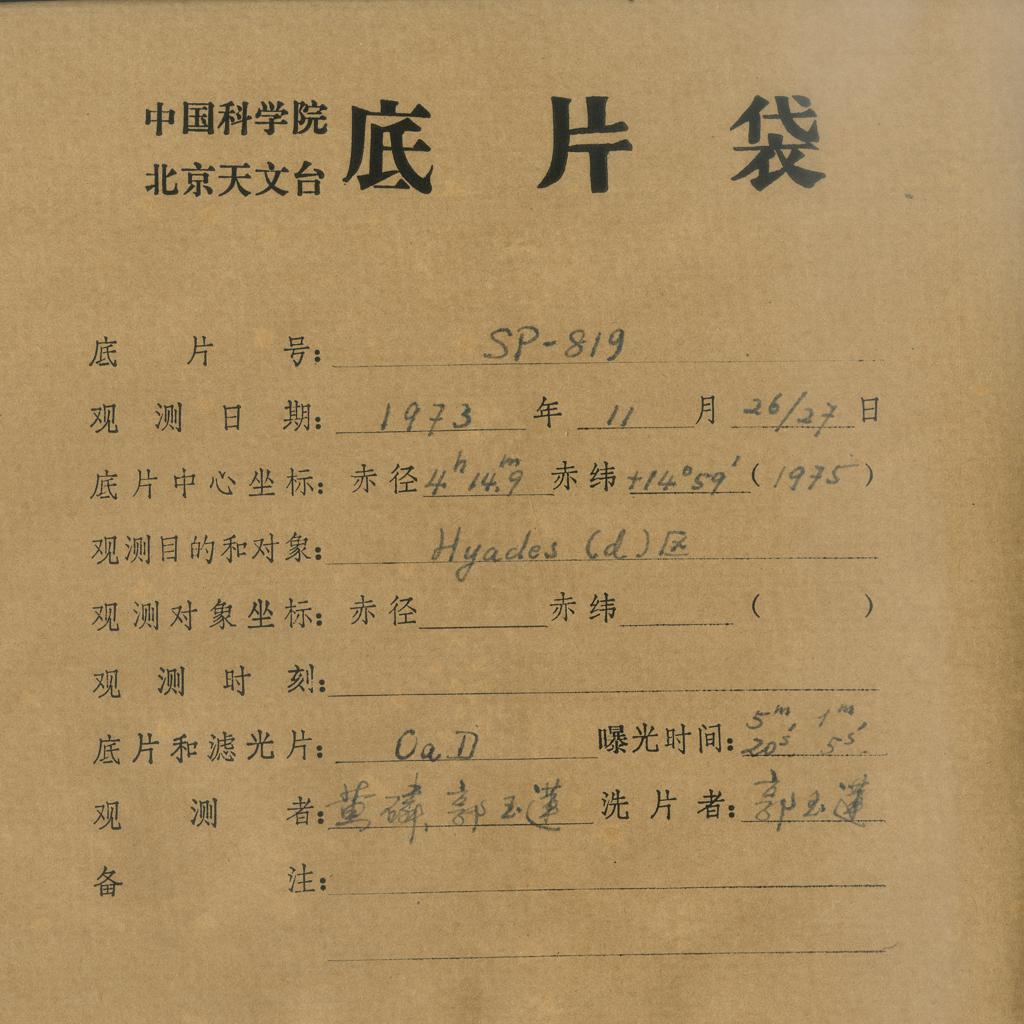 中国科学院
北京天文台
底片袋
底片号: SP-819
观测日期: 1973 年 11 月 26/27 日
底片中心坐标: 赤径 4ʰ 14ᵐ.9 赤纬 +14°59′ (1975)
观测目的和对象: Hyades (d) 区
观测对象坐标: 赤径 赤纬 ( )
观测时刻:
底片和滤光片: OaD 曝光时间: 5ᵐ, 1ᵐ, 20ˢ, 5ˢ.
观测者: 黄磷, 郭玉莲 洗片者: 郭玉莲
备注: